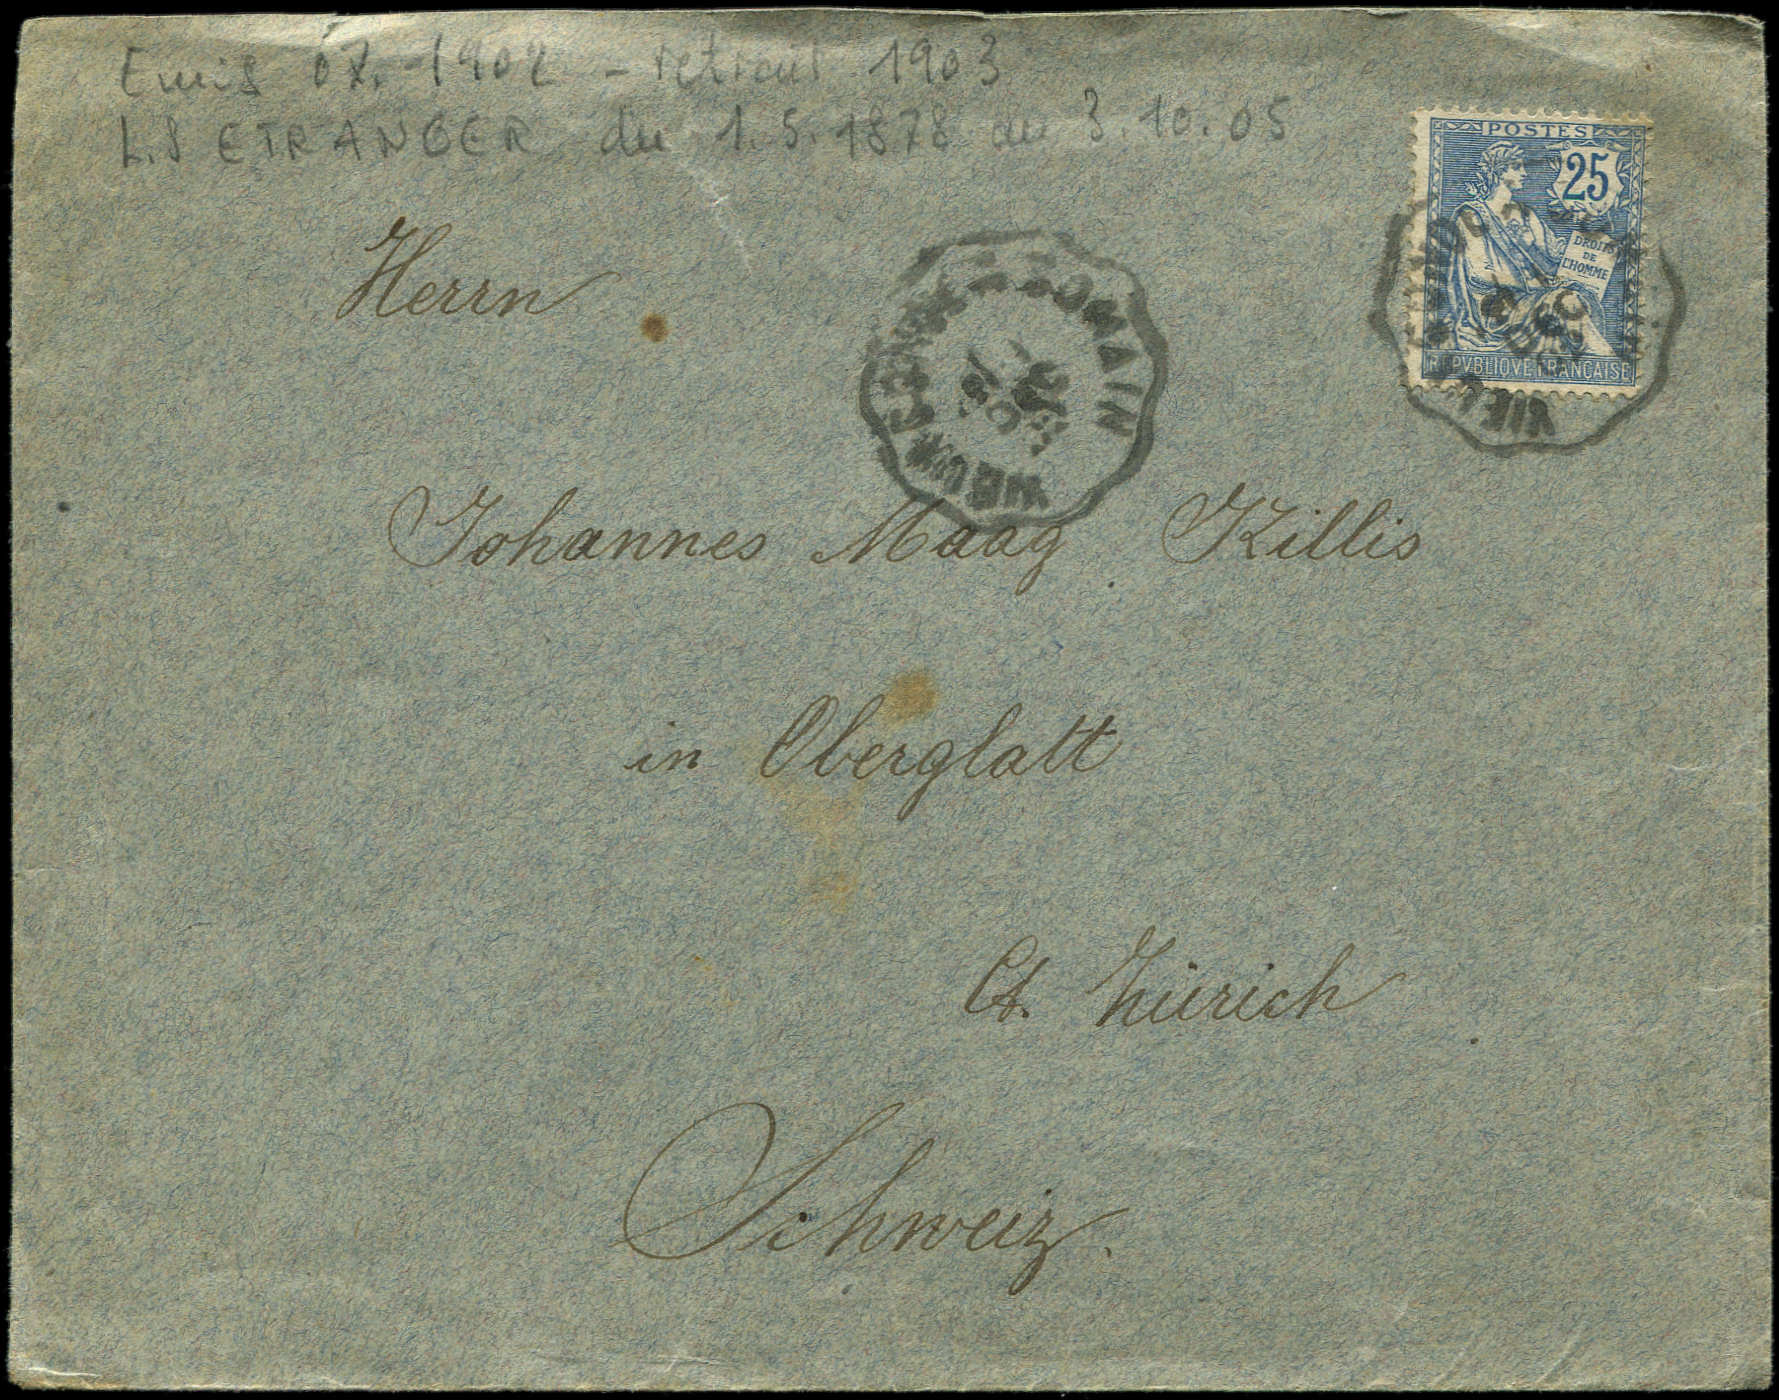 Emis 07. 1902 - retrait 1903
L.S ETRANGER du 1.5.1878 au 3.10.05
POSTES
25
DROITS
DE
L'HOMME
REPVBLIQVE FRANÇAISE
ROMAIN
Herrn
Johannes Maag Killis
in Oberglatt
Ct. Zürich
Schweiz.